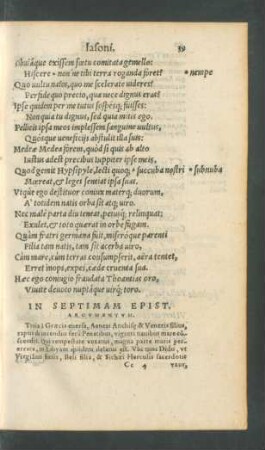 Iasoni. 59
Obuiáque exissem fœtu comitata gemello:
Hiscere * non ne tibi terra roganda foret? * nempe
Quo uultu natos, quo me scelerate uideres?
Perfide quo precio, qua nece dignus eras?
Ipse quidem per me tutus sospesq; fuisses:
Non quia tu dignus, sed quia mitis ego.
Pellicis ipsa meos implessem sanguine uultus,
Quósque ueneficijs abstulit illa suis:
Medeæ Medea forem, quòd si quis ab alto
Iustus adest precibus Iuppiter ipse meis,
Quod gemit Hypsipyle, lecti quoq; * succuba nostri * subnuba
Mœreat, & leges sentiat ipsa suas.
Vtque ego destituor coniux materq; duorum,
A' totidem natis orba sit atq; uiro.
Nec malè parta diu teneat, peiusq; relinquat;
Exulet, & toto quærat in orbe fugam.
Quàm fratri germana fuit, miseróque parenti
Filia tam natis, tam sit acerba uiro,
Cùm mare, cùm terras consumpserit, aëra tentet,
Erret inops, expes, cæde cruenta sua.
Hæc ego coniugio fraudata Thoantias oro,
Viuite deuoto nuptáque uirq; toro.
IN SEPTIMAM EPIST.
ARGVMENTVM.
Troia à Græcis euersa, Aeneas Anchisę & Veneris filius,
raptis
Penatibus, viginti nauibus mare
&
in Libyam
Dido, vt
Virgilius
Beli filia, & Sichæi Herculis sacerdotis
Cc 4 vxor,